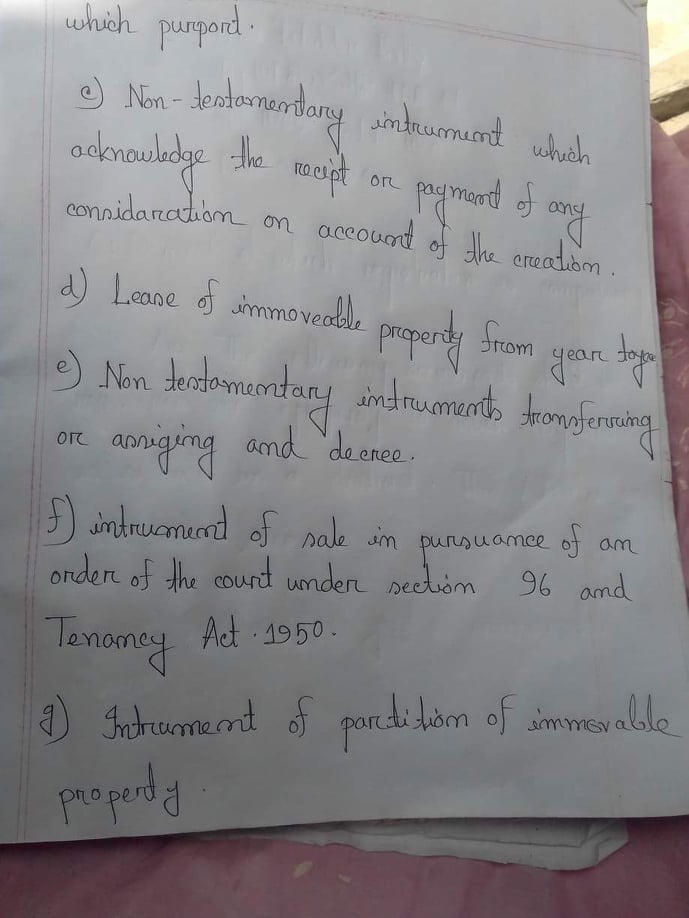 which purport.
c) Non-testamentary intrument which
acknowledge the recipt or payment of any
considaration on account of the creation.
d) Lease of immoveable property from year to ye
e) Non testamentary intruments transferring
or assiging and decree.
f) intrument of sale in pursuance of an
order of the court under section 96 and
Tenancy Act. 1950.
g) Intrument of partition of immovable
property.